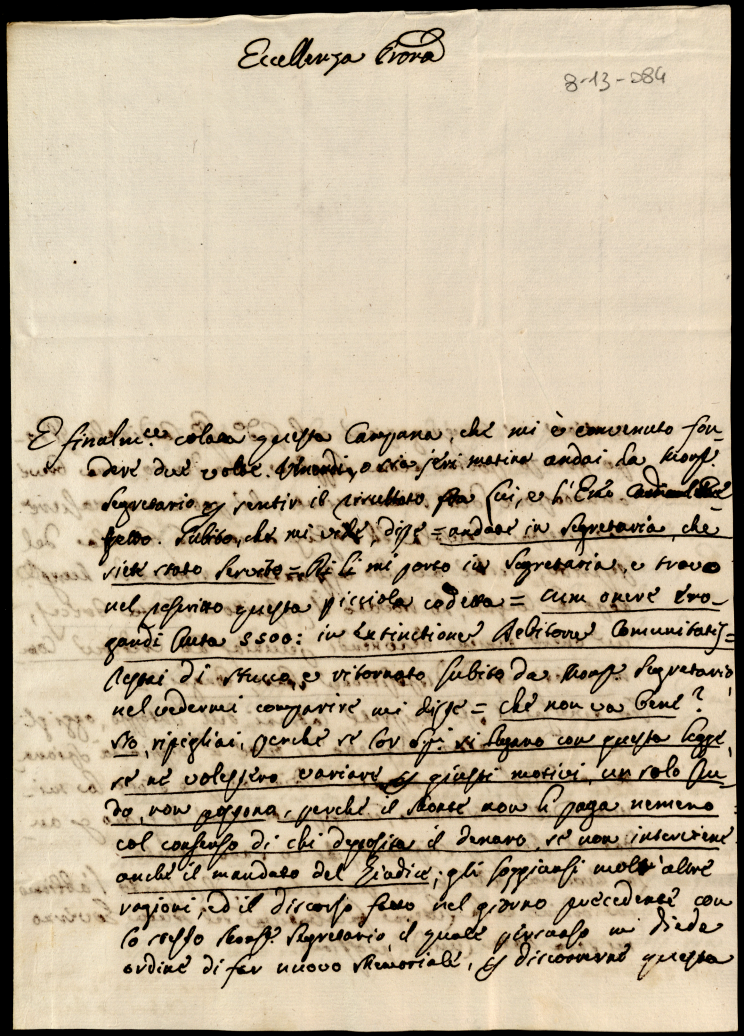 Eccellenza Prona
8-13-084
E finalm.ce colata questa Campana, che mi è convenuto fon-
dere due volte. Venerdì, o sia jeri matina andai da Mons.r
Segretario p sentir il risultato fra lui, e l'Em.o
Subito, che mi vide, disse = andate in Segretaria, che
siete stato servito = Di lì mi porto in Segretaria, e trovo
nel rescritto questa picciola codetta = cum onere ero-
gandi scuta 5500: in extinctione Debitorum Comunitatis =
Restai di stucco, e ritornato subito da Mons.r Segretario
nel vedermi comparire mi disse = che non va bene?
No, ripigliai, perchè se lor Sig.ri si legano con questa legge,
se ne volessero variare p giusti motivi, un solo scu-
do, non possono, perchè il Monte non li paga nemeno
col consenso di chi deposita il denaro, se non interviene
anche il mandato del Giudice; gli soggiunsi molt'altre
ragioni, ed il discorso fatto nel giorno precedente con
lo stesso Mons.r Segretario, il quale persuaso mi diede
ordine di far nuovo Memoriale, p discorrerne questa